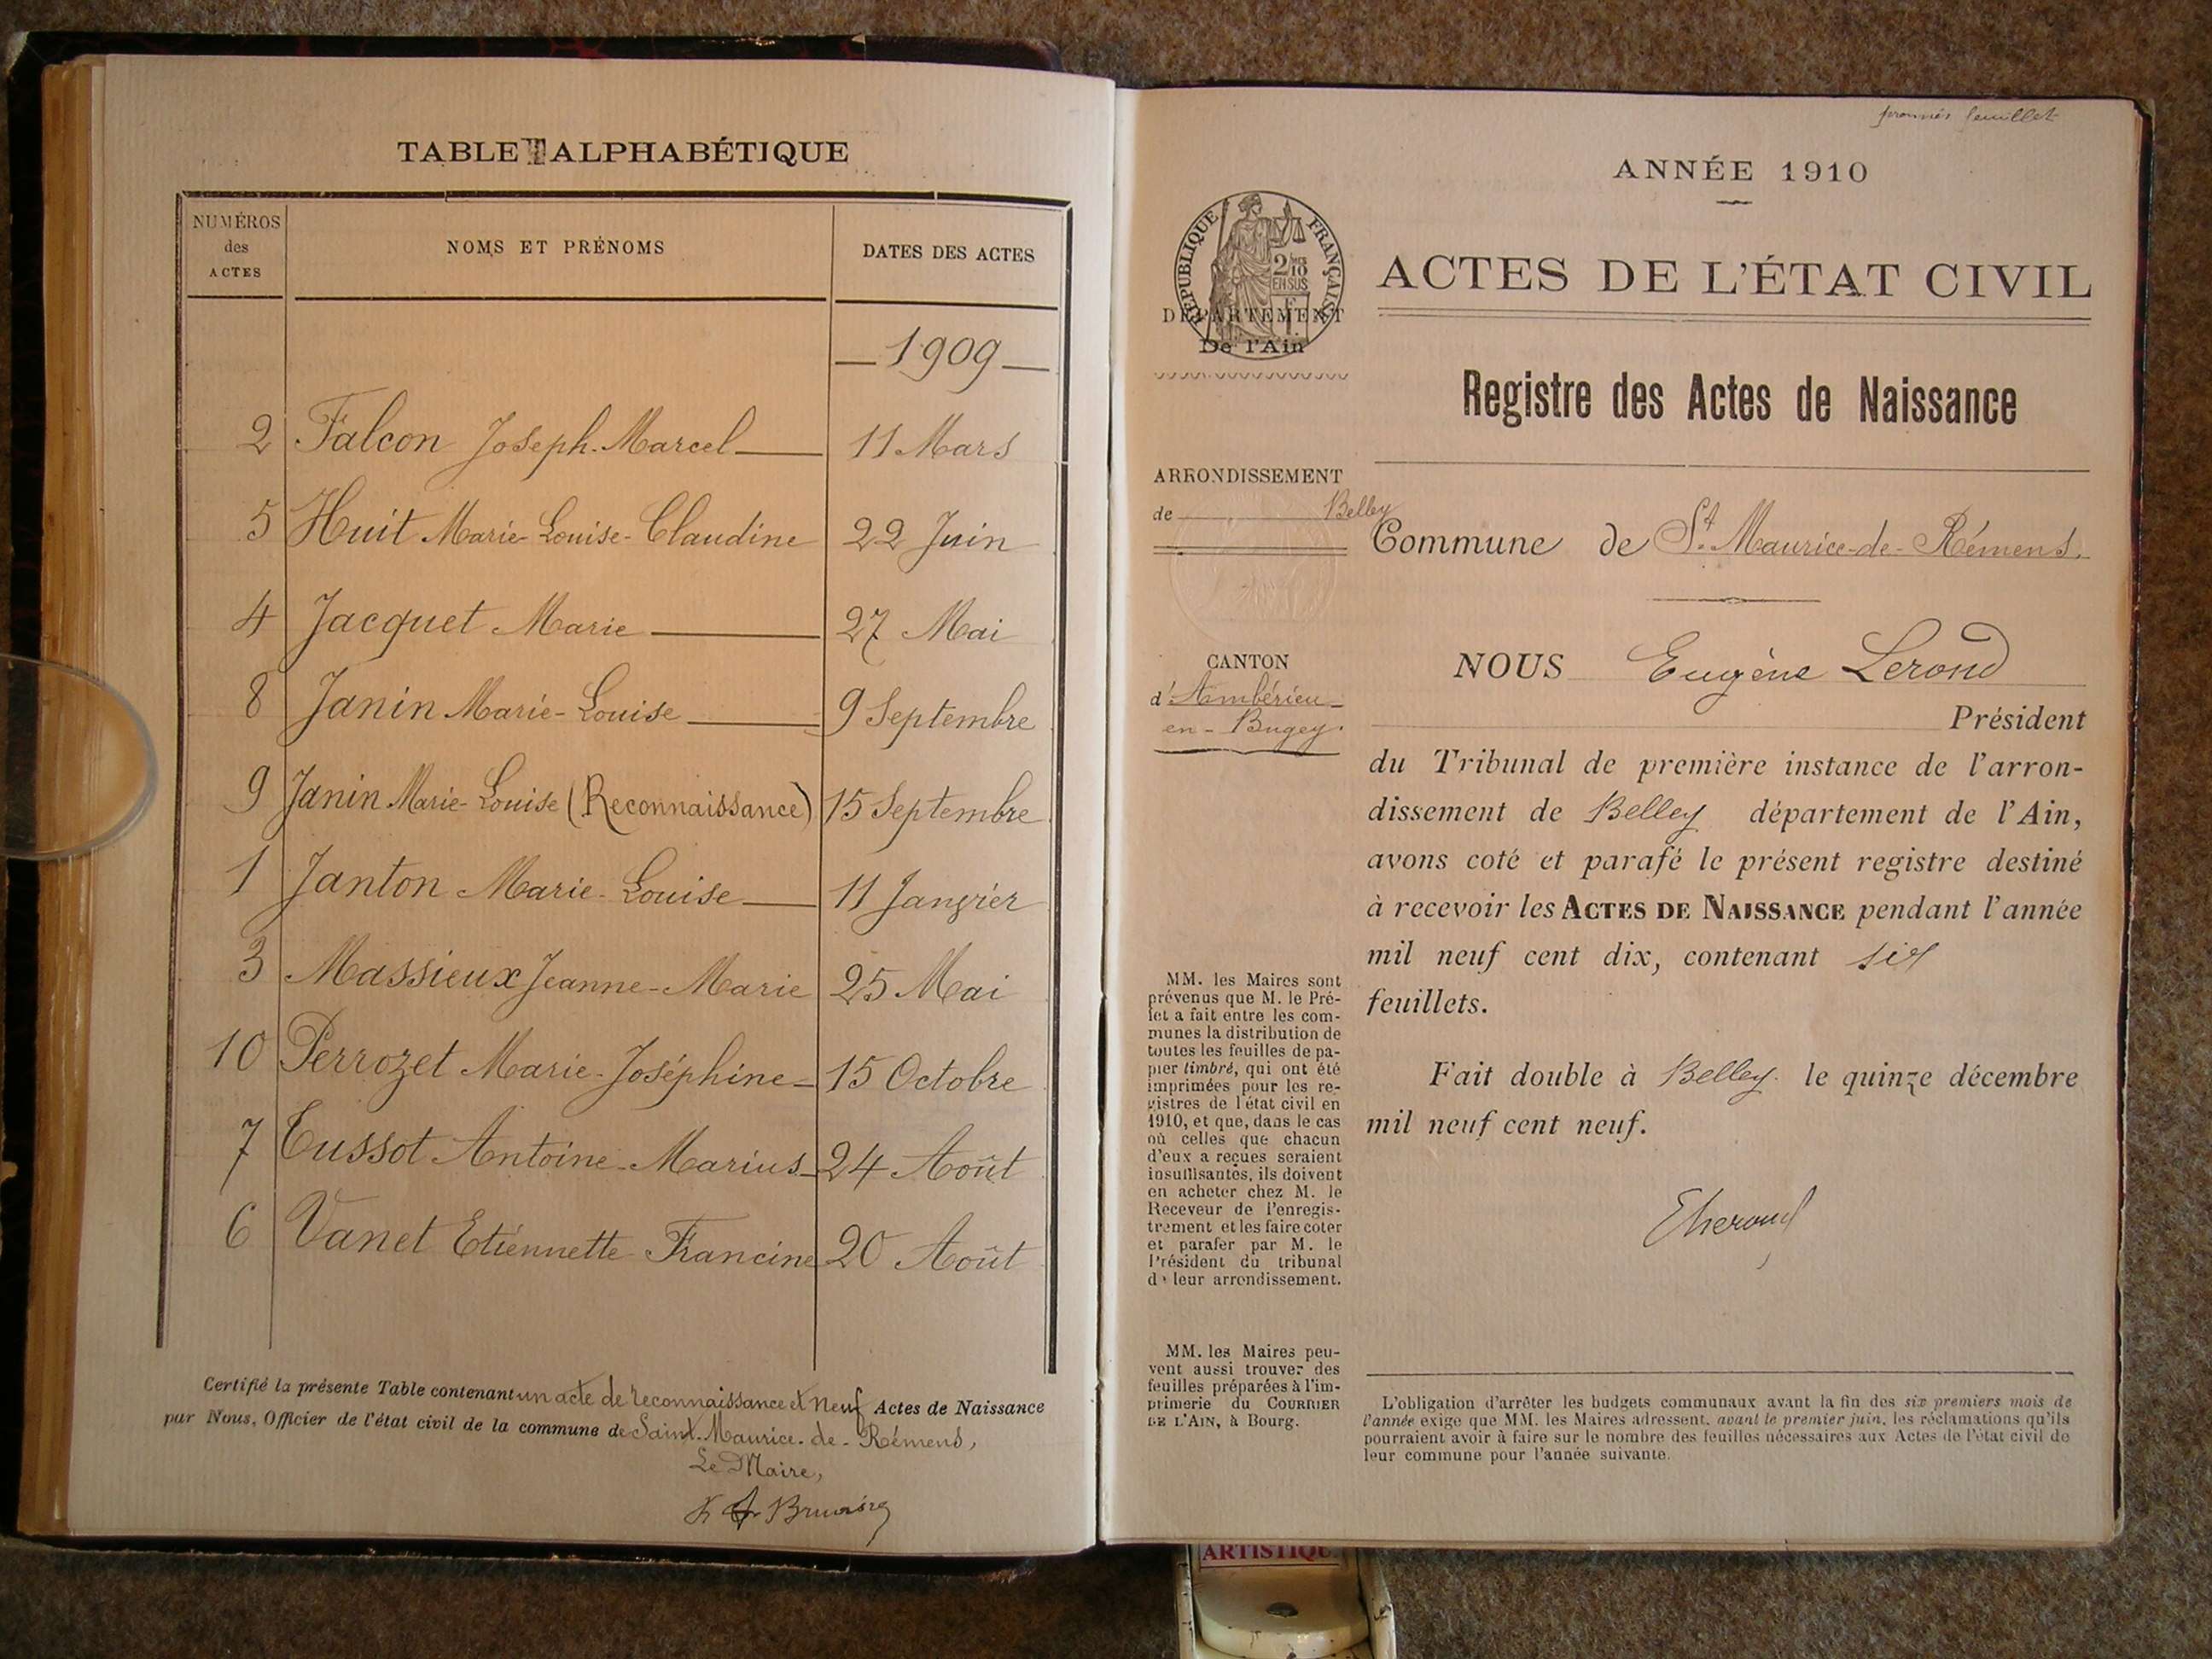 TABLE ALPHABÉTIQUE
NUMÉROS
des
ACTES
NOMS ET PRÉNOMS
DATES DES ACTES
1909
2 Falcon Joseph-Marcel 11 Mars
5 Huit Marie-Louise-Claudine 22 Juin
4 Jacquet Marie 27 Mai
8 Janin Marie-Louise 9 Septembre
9 Janin Marie-Louise (Reconnaissance) 15 Septembre
1 Janton Marie-Louise 11 Janvier
3 Massieux Jeanne-Marie 25 Mai
10 Perrozet Marie-Joséphine 15 Octobre
7 Tussot Antoine-Marius 24 Août
6 Vanet Etiennette Francine 20 Août
Certifié la présente Table contenant un acte de reconnaissance et neuf Actes de Naissance
par Nous, Officier de l'état civil de la commune de Saint-Maurice-de-Rémens,
Le Maire,
premier feuillet
ANNÉE 1910
RÉPUBLIQUE FRANÇAISE
2/10
EN SUS
DÉPARTEMENT
De l'Ain
ACTES DE L'ÉTAT CIVIL
Registre des Actes de Naissance
ARRONDISSEMENT
de Belley
Commune de St Maurice-de-Rémens.
CANTON
d'Ambérieu-
en-Bugey.
NOUS Eugène Lerond
Président
du Tribunal de première instance de l'arron-
dissement de Belley département de l'Ain,
avons coté et parafé le présent registre destiné
à recevoir les ACTES DE NAISSANCE pendant l'année
mil neuf cent dix, contenant six
feuillets.
Fait double à Belley le quinze décembre
mil neuf cent neuf.
MM. les Maires sont
prévenus que M. le Pré-
fet a fait entre les com-
munes la distribution de
toutes les feuilles de pa-
pier timbré, qui ont été
imprimées pour les re-
gistres de l'état civil en
1910, et que, dans le cas
où celles que chacun
d'eux a reçues seraient
insuffisantes, ils doivent
en acheter chez M. le
Receveur de l'enregis-
trement et les faire coter
et parafer par M. le
Président du tribunal
de leur arrondissement.
MM. les Maires peu-
vent aussi trouver des
feuilles préparées à l'im-
primerie du COURRIER
DE L'AIN, à Bourg.
L'obligation d'arrêter les budgets communaux avant la fin des six premiers mois de
l'année exige que MM. les Maires adressent, avant le premier juin, les réclamations qu'ils
pourraient avoir à faire sur le nombre des feuilles nécessaires aux Actes de l'état civil de
leur commune pour l'année suivante.
ARTISTIQUE